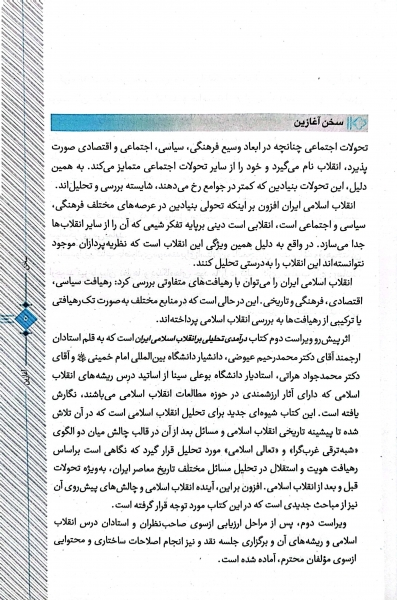 سخن آغازین
تحولات اجتماعی چنانچه در ابعاد وسیع فرهنگی، سیاسی، اجتماعی و اقتصادی صورت
پذیرد، انقلاب نام می‌گیرد و خود را از سایر تحولات اجتماعی متمایز می‌کند. به همین
دلیل، این تحولات بنیادین که کمتر در جوامع رخ می‌دهند، شایسته بررسی و تحلیل‌اند.
انقلاب اسلامی ایران افزون بر اینکه تحولی بنیادین در عرصه‌های مختلف فرهنگی،
سیاسی و اجتماعی است، انقلابی است دینی برپایه تفکر شیعی که آن را از سایر انقلاب‌ها
جدا می‌سازد. در واقع به دلیل همین ویژگی این انقلاب است که نظریه‌پردازان موجود
نتوانسته‌اند این انقلاب را به‌درستی تحلیل کنند.
انقلاب اسلامی ایران را می‌توان با رهیافت‌های متفاوتی بررسی کرد: رهیافت سیاسی،
اقتصادی، فرهنگی و تاریخی. این در حالی است که در منابع مختلف به صورت تک رهیافتی
یا ترکیبی از رهیافت‌ها به بررسی انقلاب اسلامی پرداخته‌اند.
اثر پیش‌رو ویراست دوم کتاب درآمدی تحلیلی بر انقلاب اسلامی ایران است که به قلم استادان
ارجمند آقای دکتر محمدرحیم عیوضی، دانشیار دانشگاه بین‌المللی امام خمینی و آقای
دکتر محمدجواد هراتی، استادیار دانشگاه بوعلی سینا از اساتید درس ریشه‌های انقلاب
اسلامی که دارای آثار ارزشمندی در حوزه مطالعات انقلاب اسلامی می‌باشند، نگارش
یافته است. این کتاب شیوه‌ای جدید برای تحلیل انقلاب اسلامی است که در آن تلاش
شده تا پیشینه تاریخی انقلاب اسلامی و مسائل بعد از آن در قالب چالش میان دو الگوی
«شبه‌ترقی غرب‌گرا» و «تعالی اسلامی» مورد تحلیل قرار گیرد که نگاهی است براساس
رهیافت هویت و استقلال در تحلیل مسائل مختلف تاریخ معاصر ایران، به‌ویژه تحولات
قبل و بعد از انقلاب اسلامی. افزون بر این، آینده انقلاب اسلامی و چالش‌های پیش‌روی آن
نیز از مباحث جدیدی است که در این کتاب مورد توجه قرار گرفته است.
ویراست دوم، پس از مراحل ارزیابی ازسوی صاحب‌نظران و استادان درس انقلاب
اسلامی و ریشه‌های آن و برگزاری جلسه نقد و نیز انجام اصلاحات ساختاری و محتوایی
ازسوی مؤلفان محترم، آماده شده است.
سخن
۵
آغازین